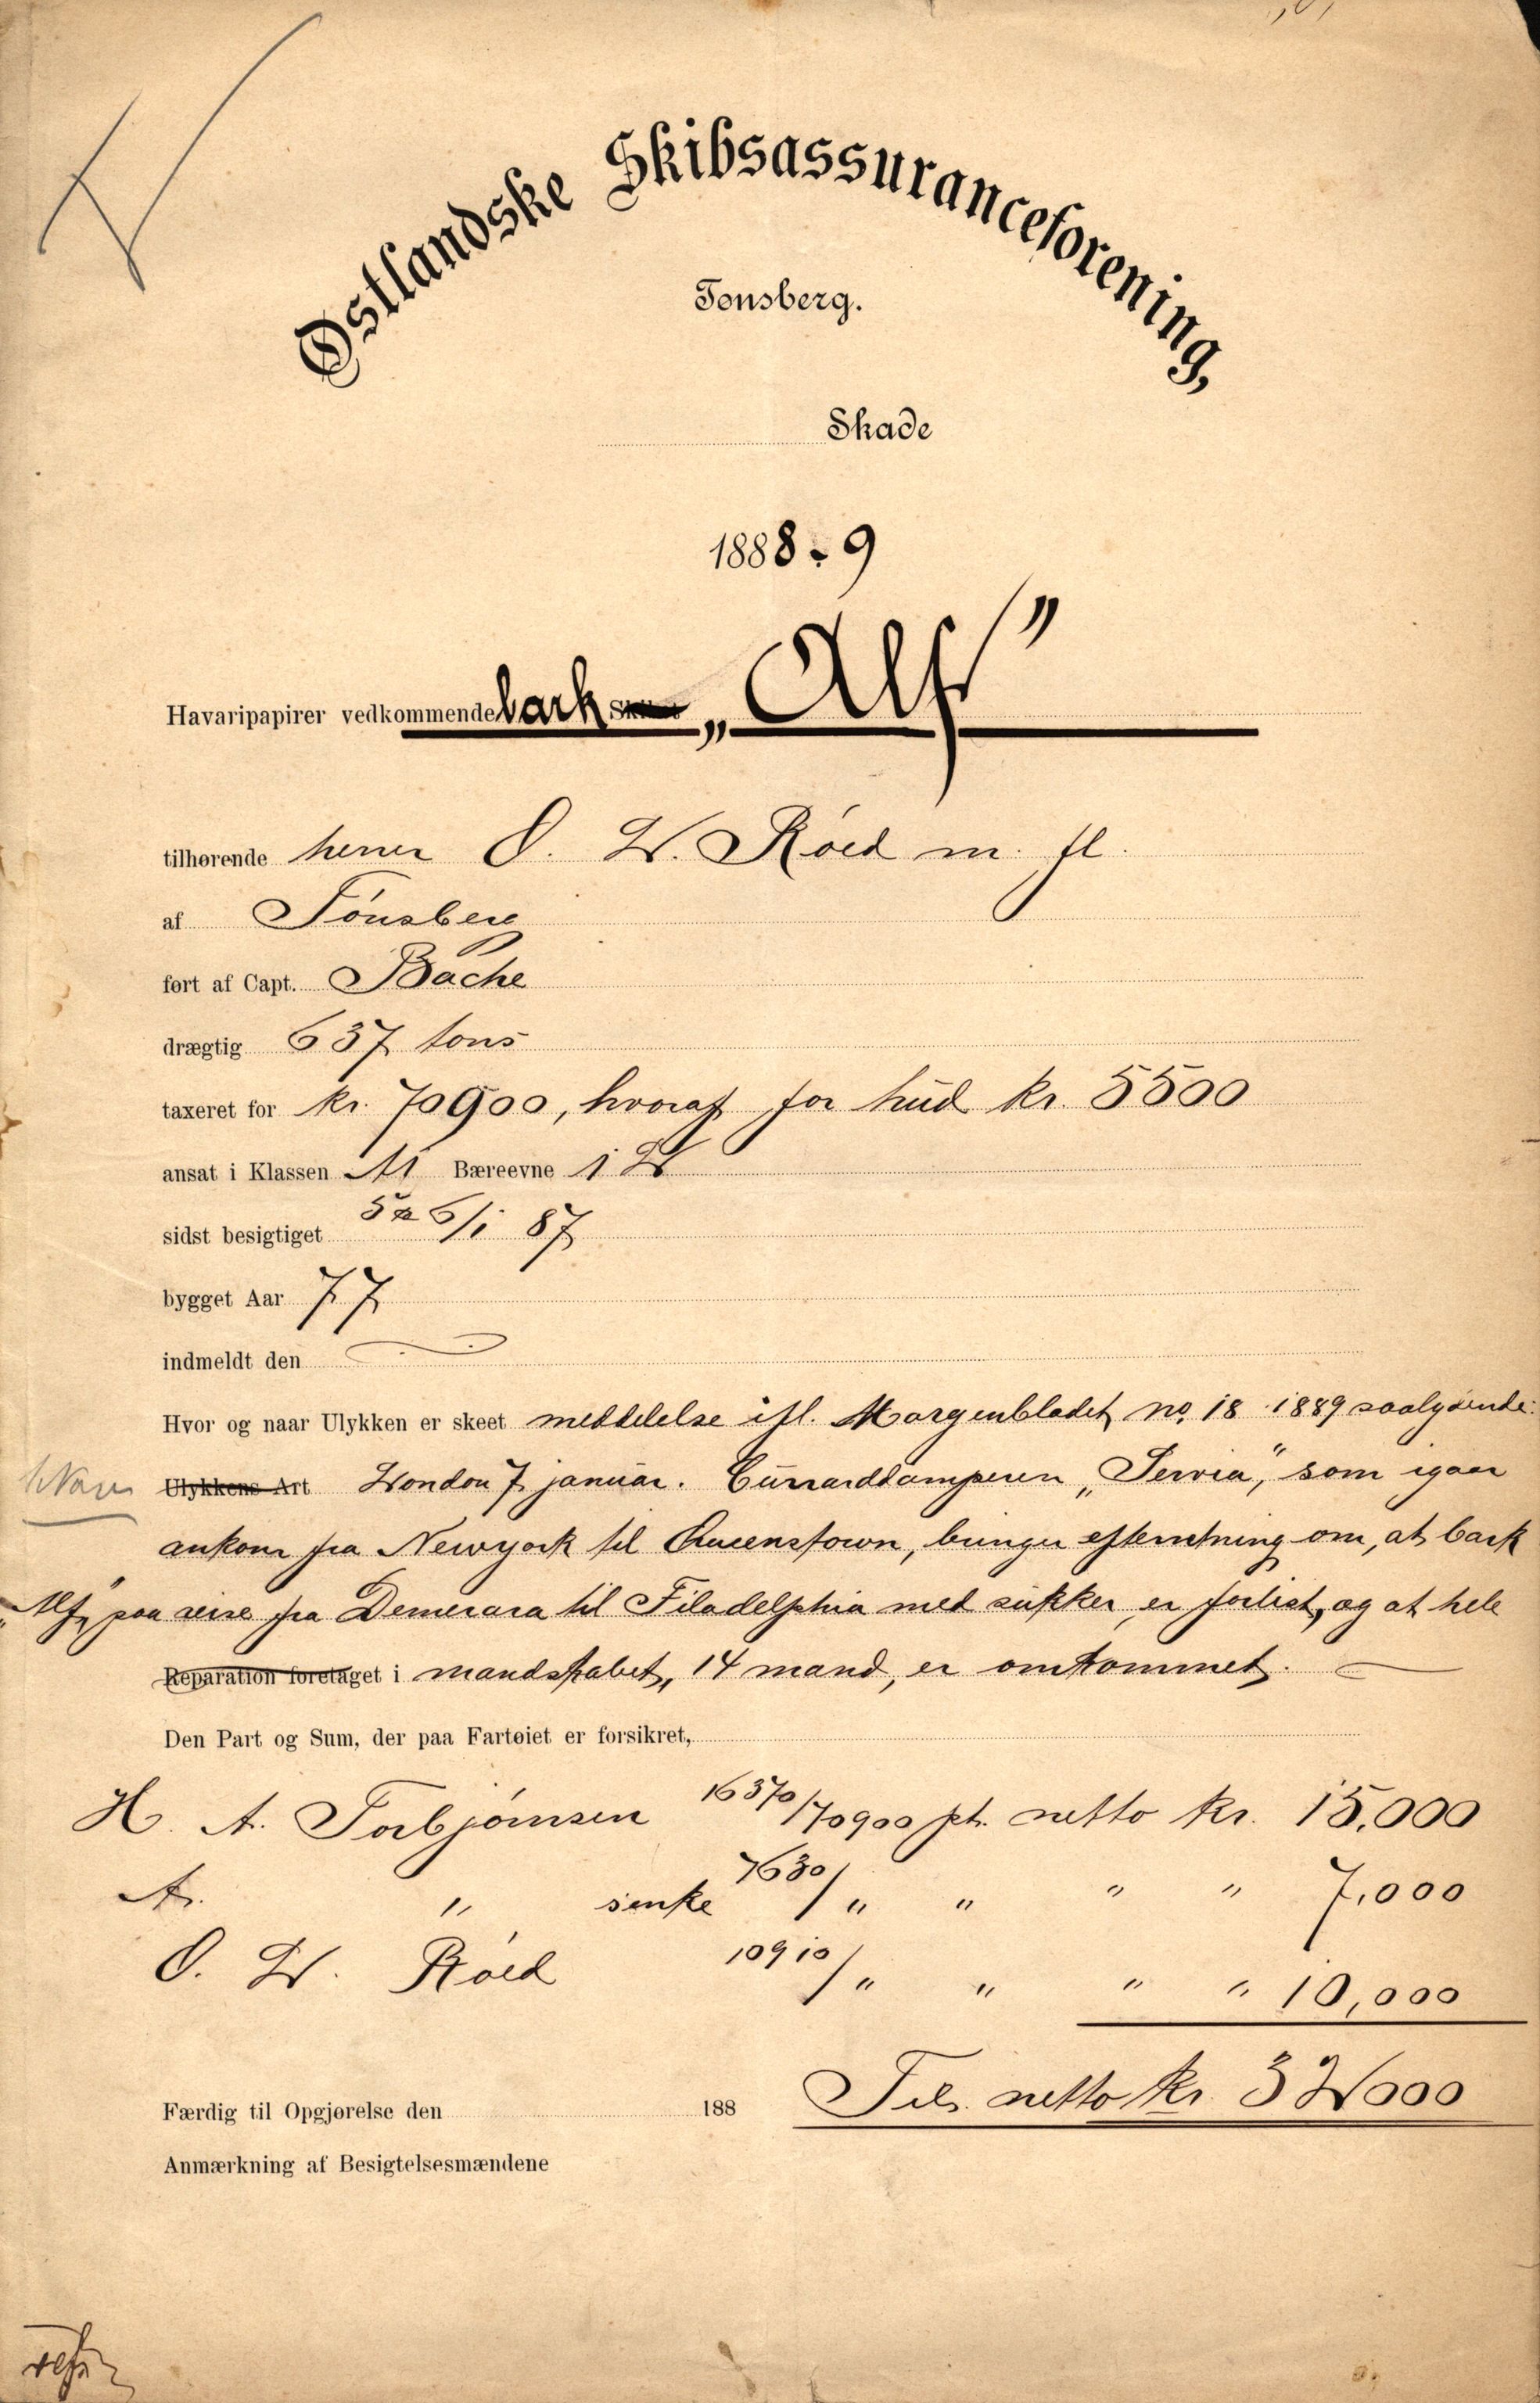 Østlandske Skibsassuranceforening,
Tønsberg.
Skade
1888-9
Havaripapirer vedkommende bark „Alf”
tilhørende herrer O. L. Röed m. fl.
af Tönsberg
ført af Capt. Bache
drægtig 637 tons
taxeret for kr. 70900, hvoraf for hud kr. 5500
ansat i Klassen A1 Bæreevne 1 L
sidst besigtiget 6/1 87
bygget Aar 77
indmeldt den
Hvor og naar Ulykken er skeet meddelelse ifl. Morgenbladet no. 18 1889 saalydende:
Ulykkens Art London 7 januar. Cunarddamperen „Servia”, som igaar
ankom fra Newyork til Queenstown, bringer efterretning om, at bark
„Alf” paa reise fra Demerara til Filadelphia med sukker er forlist, og at hele
Reparation foretaget i mandskabet, 14 mand, er omkommet.
Den Part og Sum, der paa Fartøiet er forsikret,
H. A. Torbjörnsen 16370/70900 pt. netto kr. 15,000
A. " enke 7630/" " " " 7,000
O. L. Röed 10910/" " " " 10,000
Tils. netto kr 32000
Færdig til Opgjørelse den 188
Anmærkning af Besigtelsesmændene